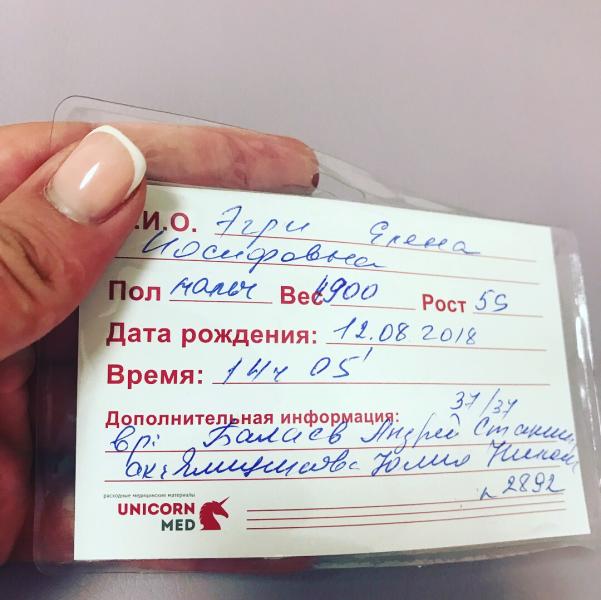 .И.О. Эгри Елена
Иосифовна
Пол мальч Вес 4900 Рост 59
Дата рождения: 12.08.2018
Время: 14ч 05'
Дополнительная информация: 37/37
вр: Балаев Андрей
ак: Юлия
2892
расходные медицинские материалы
UNICORN
MED